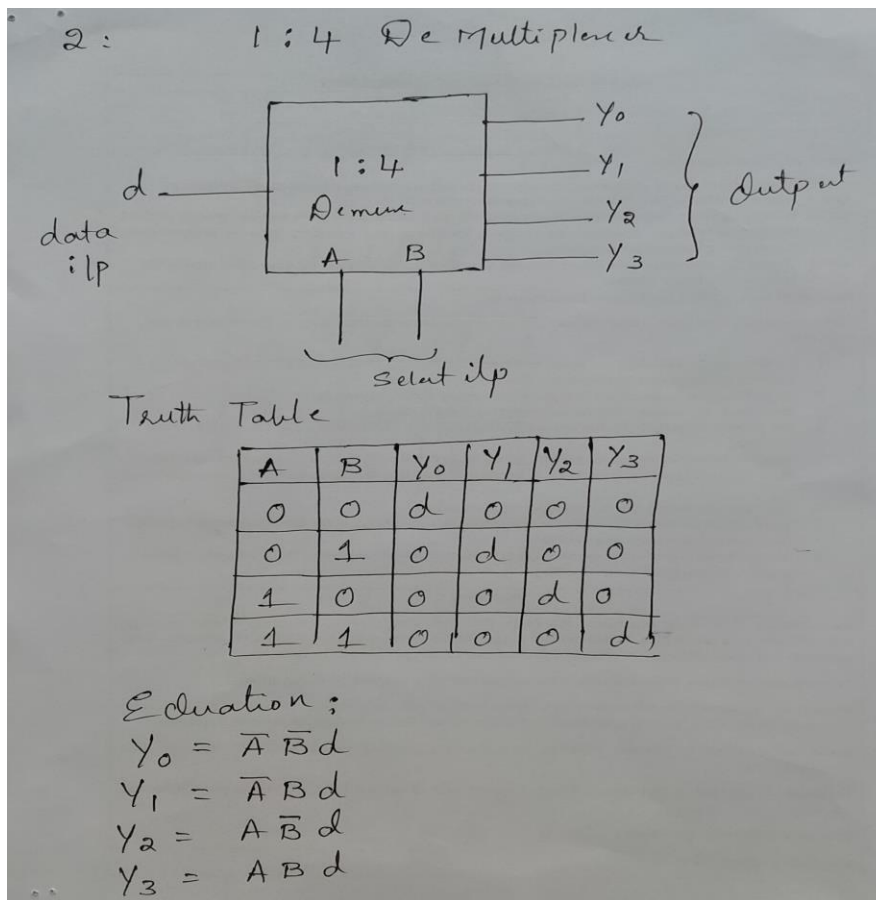 2 : 1 : 4 De Multiplexer
Y0
1 : 4 Y1
d Demux Output
Y2
data A B Y3
i/p
Select i/p
Truth Table
A B Y0 Y1 Y2 Y3
0 0 d 0 0 0
0 1 0 d 0 0
1 0 0 0 d 0
1 1 0 0 0 d
Equation :
Y0 = A̅ B̅ d
Y1 = A̅ B d
Y2 = A B̅ d
Y3 = A B d